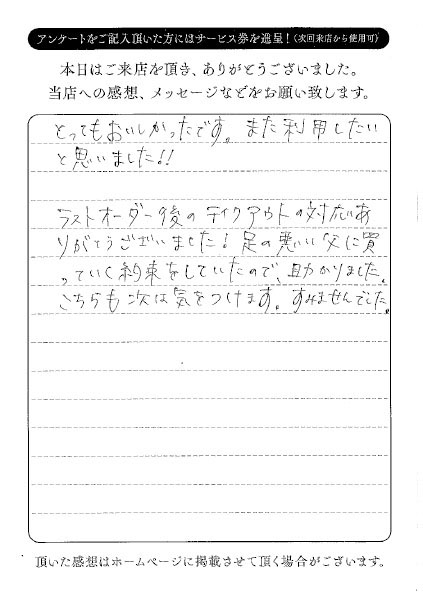 アンケートをご記入頂いた方にはサービス券を進呈！（次回来店から使用可）
本日はご来店を頂き、ありがとうございました。
当店への感想、メッセージなどをお願い致します。
とってもおいしかったです。また利用したい
と思いました!!
ラストオーダー後のテイクアウトの対応あ
りがとうございました！足の悪い父に買
っていく約束をしていたので、助かりました。
こちらも次は気をつけます。すみませんでした。
頂いた感想はホームページに掲載させて頂く場合がございます。